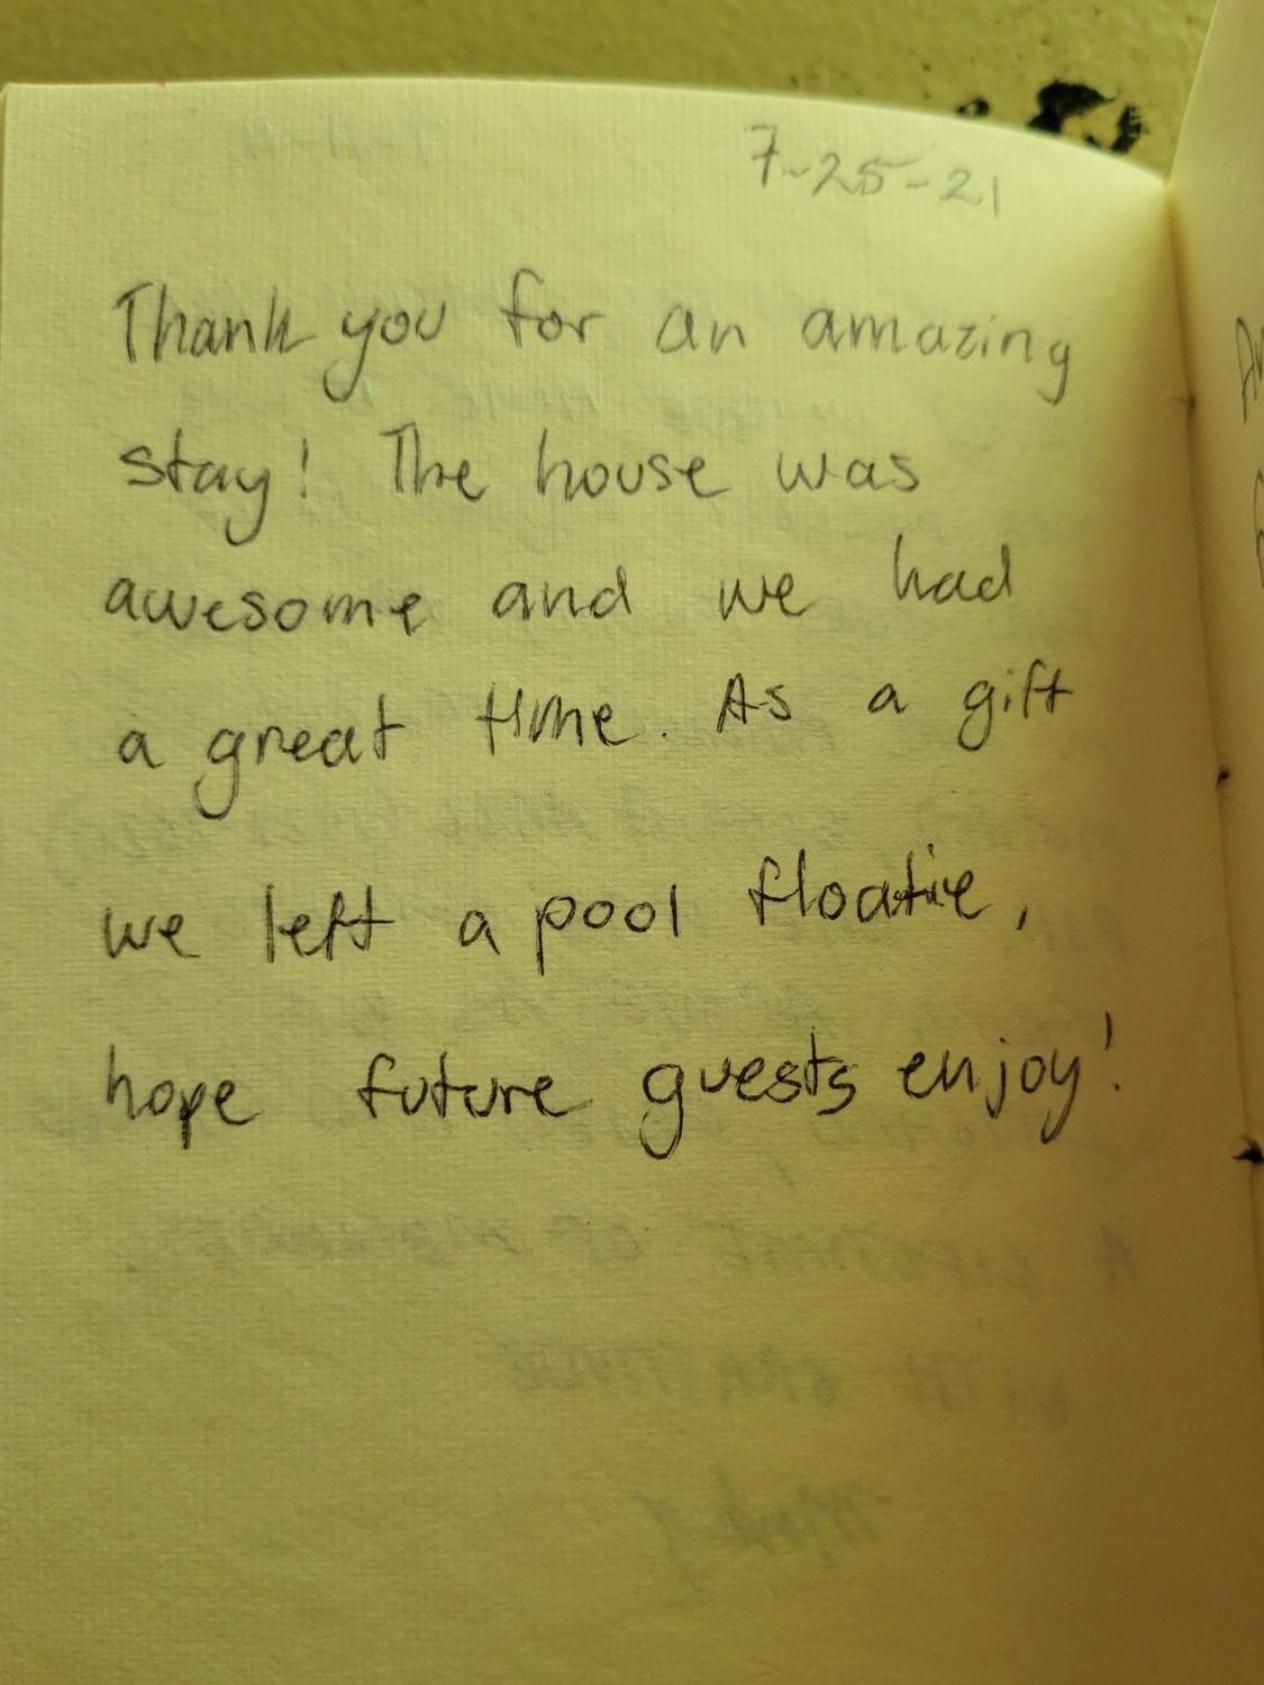 7-25-21
Thank you for an amazing
stay! The house was
awesome and we had
a great time. As a gift
we left a pool floatie,
hope future guests enjoy!